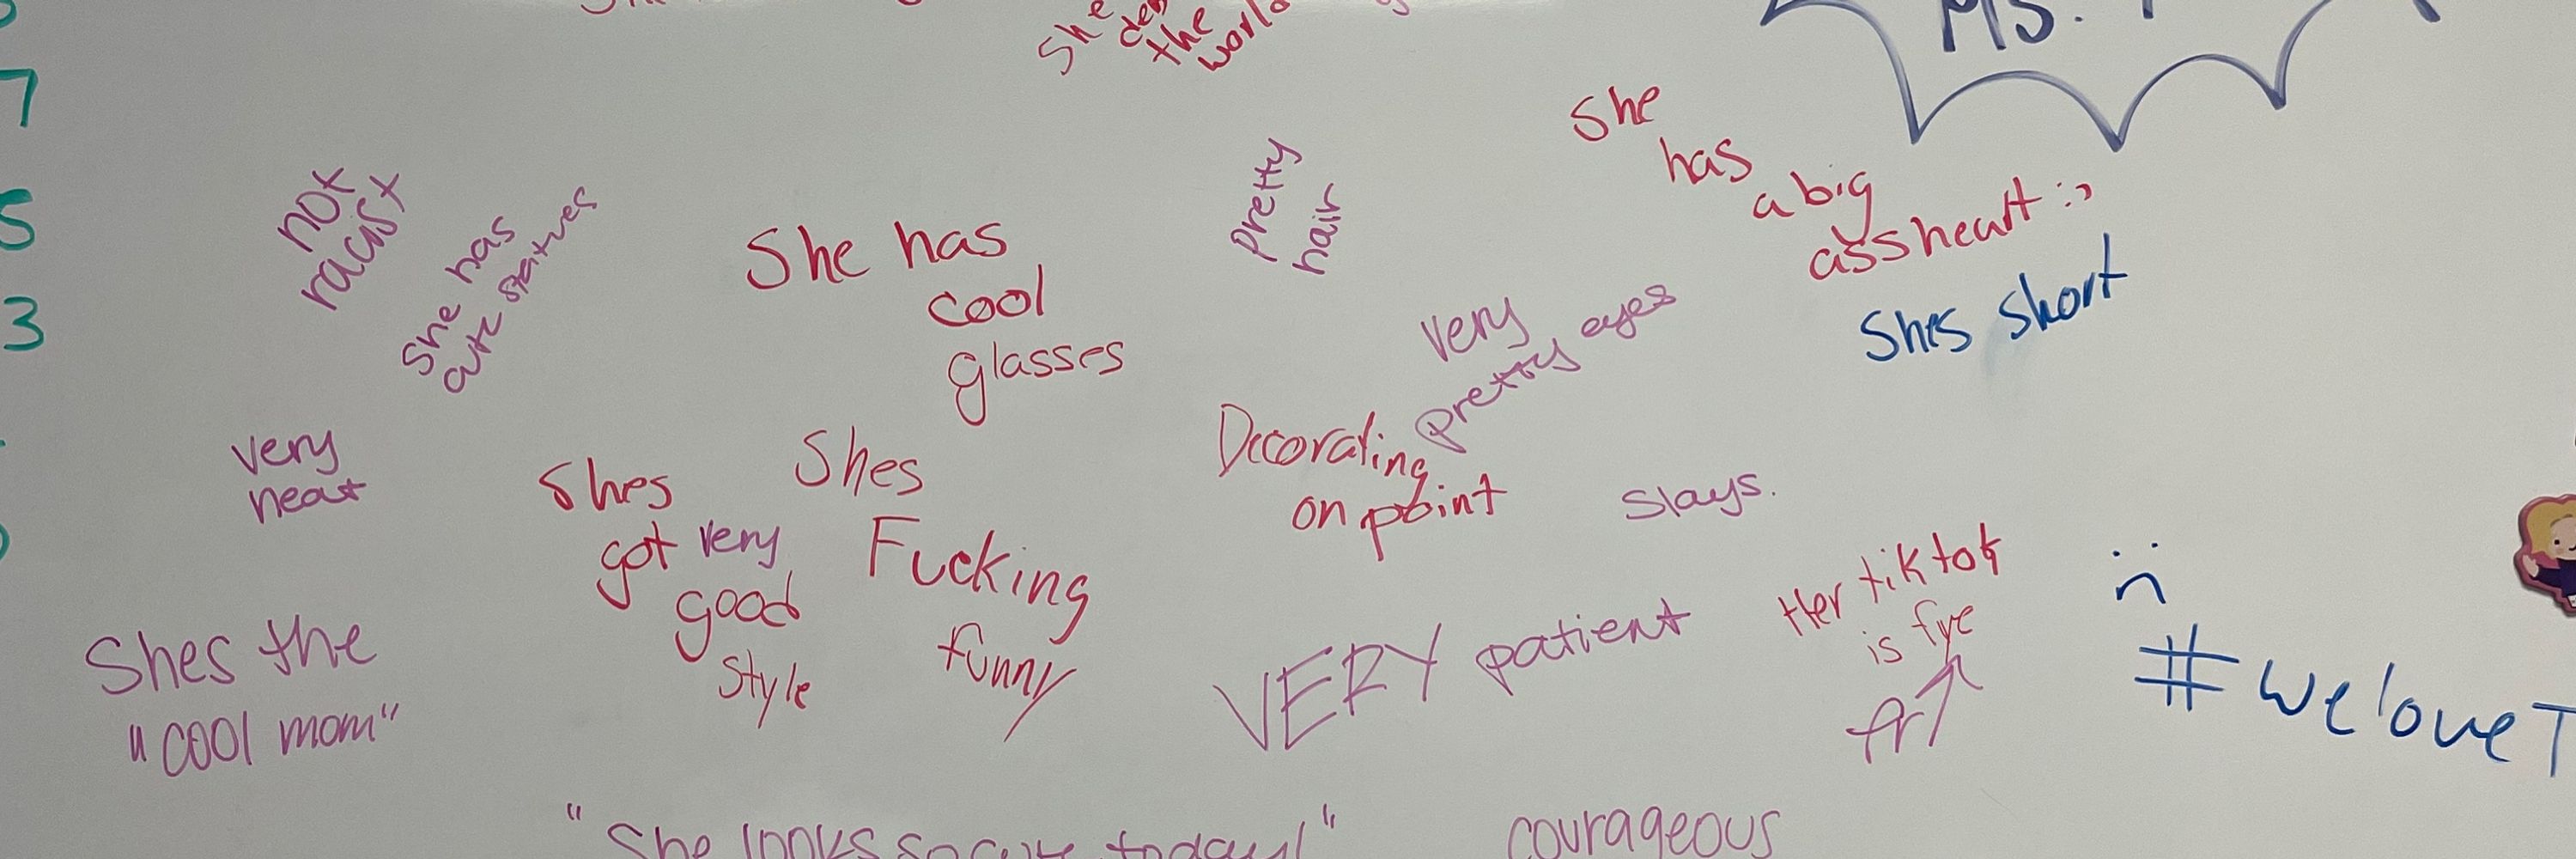 She
the
world
Ms.
7
5
3
not
racist
She has
cute features
She has
cool
glasses
Pretty
hair
She
has
a big
ass heart :)
Shes short
very
pretty eyes
very
neat
Shes
got very
good
Style
Shes
Fucking
funny
Decorating
on point
Slays.
Shes the
"cool mom"
VERY patient
Her tiktok
is fye
fr
#weloveT
"She looks so cute today!"
courageous